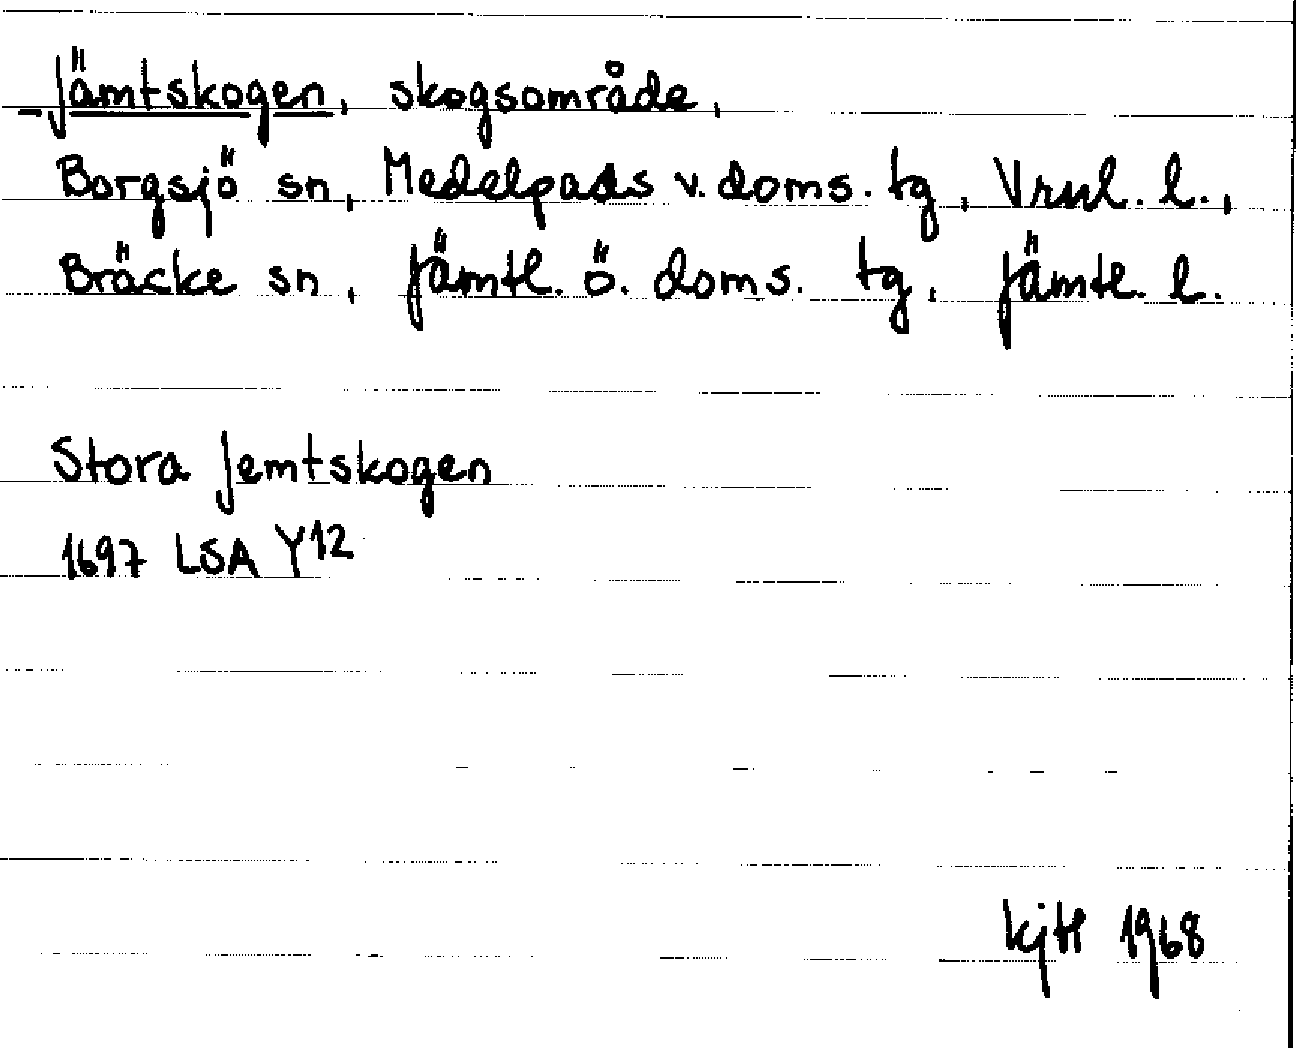 Jämtskogen, skogsområde,
Borgsjö sn, Medelpads v. doms. tg, Vrnl. l.,
Bräcke sn, Jämtl. ö. doms. tg, Jämtl. l.
Stora Jemtskogen
1697 LSA Y12
1968